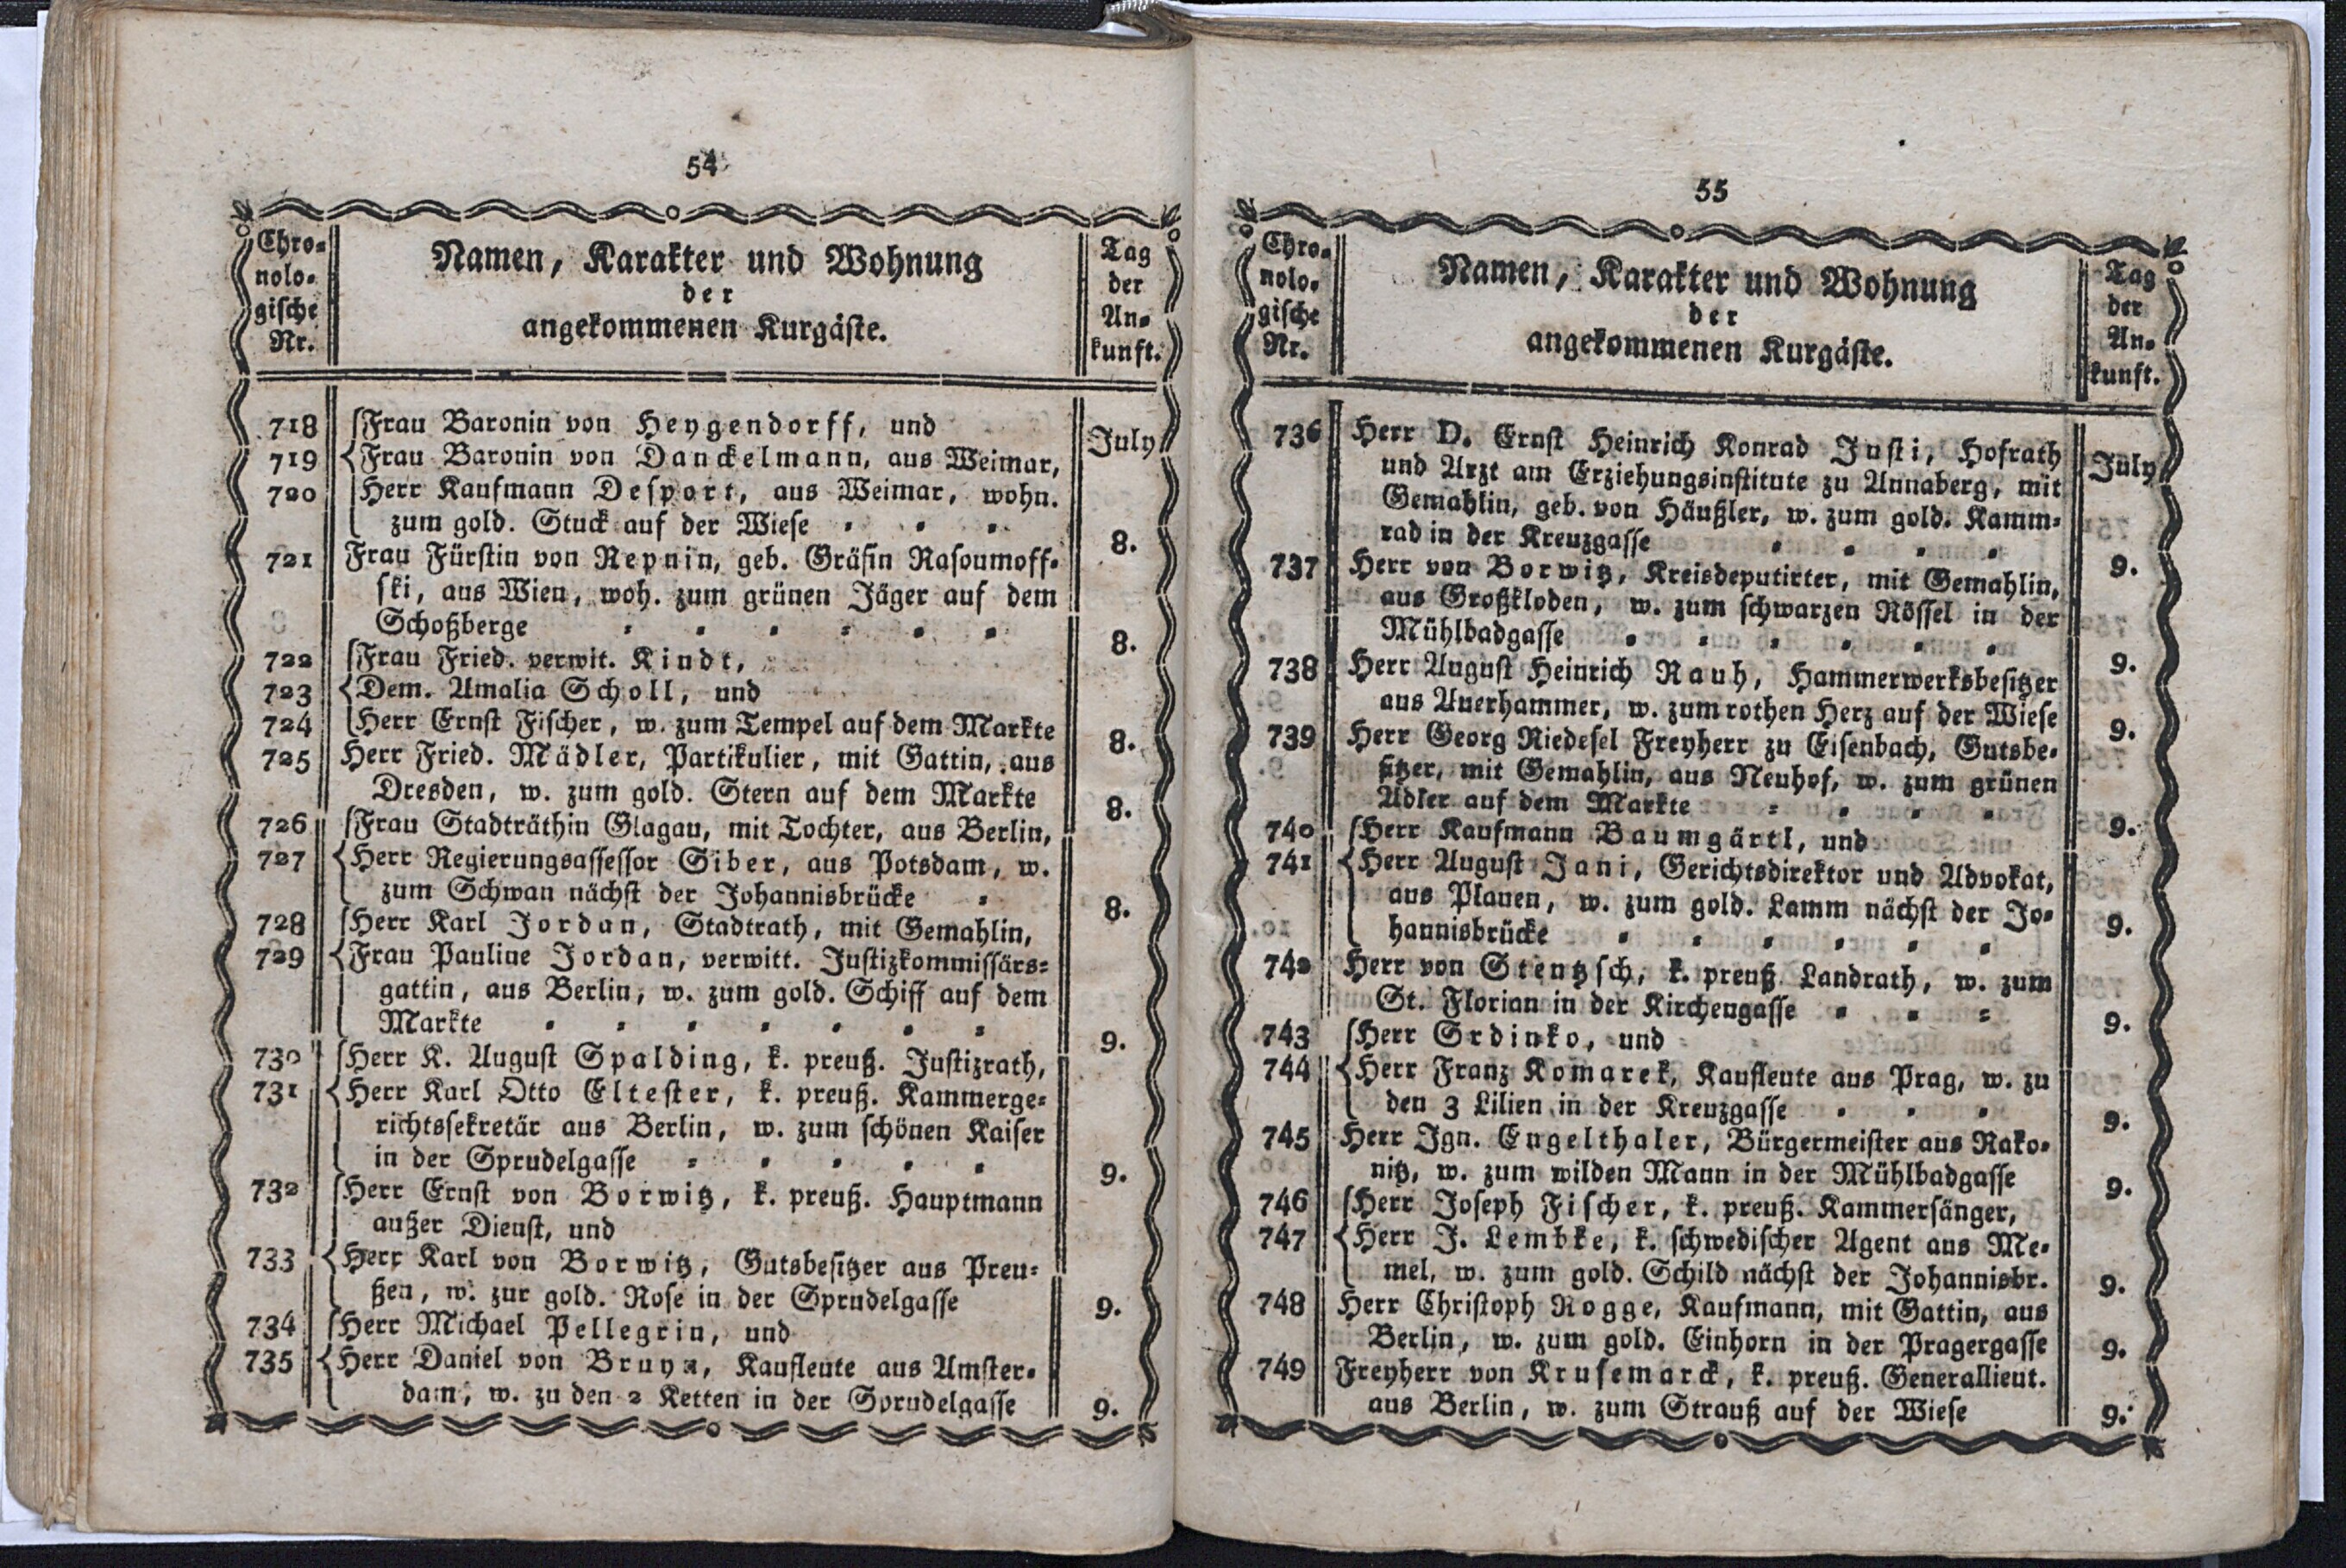 54
Chro-
nolo-
gische
Nr.
Namen, Karakter und Wohnung
der
angekommenen Kurgäste.
Tag
der
An-
kunft.
July
718 Frau Baronin von Heygendorff, und
719 Frau Baronin von Danckelmann, aus Weimar,
720 Herr Kaufmann Desport, aus Weimar, wohn.
zum gold. Stuck auf der Wiese 8.
721 Frau Fürstin von Repnin, geb. Gräfin Rasoumoff-
ski, aus Wien, woh. zum grünen Jäger auf dem
Schoßberge 8.
722 Frau Fried. verwit. Kindt,
723 Dem. Amalia Scholl, und
724 Herr Ernst Fischer, w. zum Tempel auf dem Markte 8.
725 Herr Fried. Mädler, Partikulier, mit Gattin, aus
Dresden, w. zum gold. Stern auf dem Markte 8.
726 Frau Stadträthin Glagau, mit Tochter, aus Berlin,
727 Herr Regierungsassessor Siber, aus Potsdam, w.
zum Schwan nächst der Johannisbrücke 8.
728 Herr Karl Jordan, Stadtrath, mit Gemahlin,
729 Frau Pauline Jordan, verwitt. Justizkommissärs-
gattin, aus Berlin, w. zum gold. Schiff auf dem
Markte 9.
730 Herr K. August Spalding, k. preuß. Justizrath,
731 Herr Karl Otto Eltester, k. preuß. Kammerge-
richtssekretär aus Berlin, w. zum schönen Kaiser
in der Sprudelgasse 9.
732 Herr Ernst von Borwitz, k. preuß. Hauptmann
außer Dienst, und
733 Herr Karl von Borwitz, Gutsbesitzer aus Preu-
ßen, w. zur gold. Rose in der Sprudelgasse 9.
734 Herr Michael Pellegrin, und
735 Herr Daniel von Bruyn, Kaufleute aus Amster-
dam, w. zu den 2 Ketten in der Sprudelgasse 9.
55
Chro-
nolo-
gische
Nr.
Namen, Karakter und Wohnung
der
angekommenen Kurgäste.
Tag
der
An-
kunft.
July
736 Herr D. Ernst Heinrich Konrad Justi, Hofrath
und Arzt am Erziehungsinstitute zu Annaberg, mit
Gemahlin, geb. von Häußler, w. zum gold. Kamm-
rad in der Kreuzgasse 9.
737 Herr von Borwitz, Kreisdeputirter, mit Gemahlin,
aus Großkloden, w. zum schwarzen Rössel in der
Mühlbadgasse 9.
738 Herr August Heinrich Rauh, Hammerwerksbesitzer
aus Auerhammer, w. zum rothen Herz auf der Wiese 9.
739 Herr Georg Riedesel Freyherr zu Eisenbach, Gutsbe-
sitzer, mit Gemahlin, aus Neuhof, w. zum grünen
Adler auf dem Markte 9.
740 Herr Kaufmann Baumgärtl, und
741 Herr August Jani, Gerichtsdirektor und Advokat,
aus Plauen, w. zum gold. Lamm nächst der Jo-
hannisbrücke 9.
742 Herr von Stentzsch, k. preuß. Landrath, w. zum
St. Florian in der Kirchengasse 9.
743 Herr Srdinko, und
744 Herr Franz Komarek, Kaufleute aus Prag, w. zu
den 3 Lilien in der Kreuzgasse 9.
745 Herr Ign. Engelthaler, Bürgermeister aus Rako-
nitz, w. zum wilden Mann in der Mühlbadgasse 9.
746 Herr Joseph Fischer, k. preuß. Kammersänger,
747 Herr J. Lembke, k. schwedischer Agent aus Me-
mel, w. zum gold. Schild nächst der Johannisbr. 9.
748 Herr Christoph Rogge, Kaufmann, mit Gattin, aus
Berlin, w. zum gold. Einhorn in der Pragergasse 9.
749 Freyherr von Krusemarck, k. preuß. Generallieut.
aus Berlin, w. zum Strauß auf der Wiese 9.